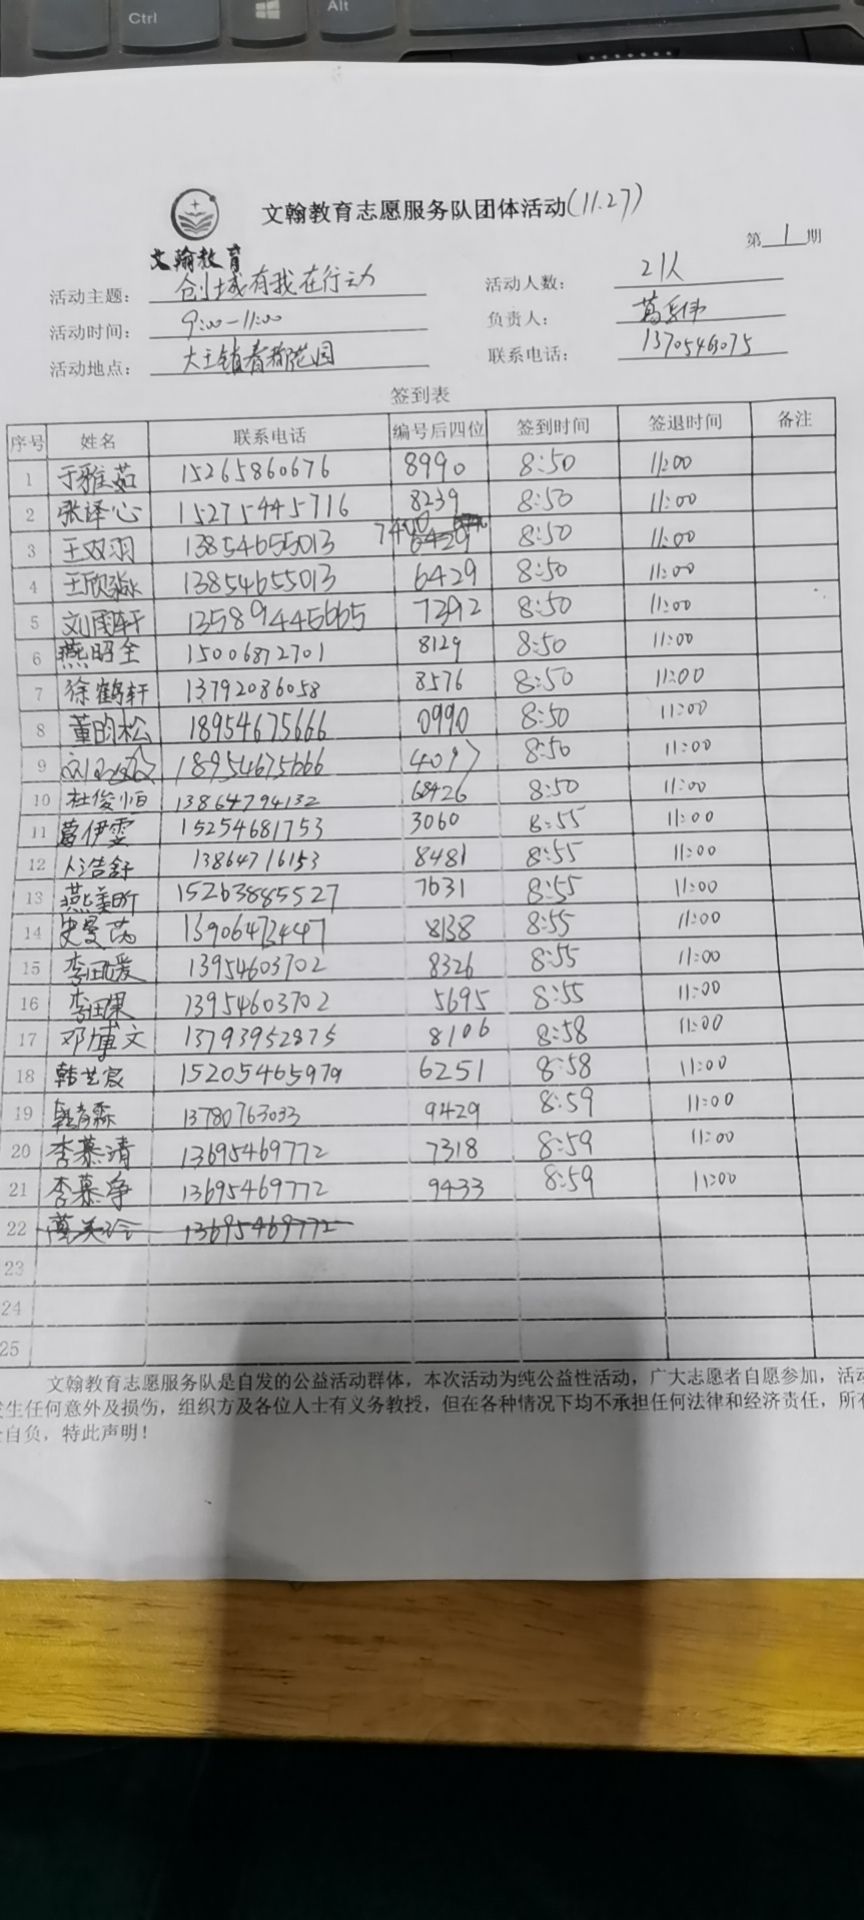 Ctrl
Alt
文翰教育志愿服务队团体活动(11.27)
第 1 期
文翰教育
活动主题: 创城有我在行动 活动人数: 21人
活动时间: 9:00-11:00 负责人:
活动地点: 大王镇香榭花园 联系电话: 1370546075
签到表
序号 姓名 联系电话 编号后四位 签到时间 签退时间 备注
1 于雅茹 15265860676 8990 8:50 11:00
2 张译心 15275445716 8239 8:50 11:00
3 王双羽 13854655013 7400 8:50 11:00
4 王欣淼 13854655013 6429 8:50 11:00
5 刘雨轩 7392 8:50 11:00
6 燕昭全 15006872701 8129 8:50 11:00
7 徐鹤轩 13792086058 8576 8:50 11:00
8 董昀松 18954675666 0990 8:50 11:00
9 18954675666 4097 8:50 11:00
10 杜俊怕 13864794132 68426 8:50 11:00
11 葛伊雯 15254681753 3060 8:55 11:00
12 13864716153 8481 8:55 11:00
13 燕美昕 15263885527 7631 8:55 11:00
14 史曼 13906473447 8138 8:55 11:00
15 李 13954603702 8326 8:55 11:00
16 李 13954603702 5695 8:55 11:00
17 邓博文 13793952875 8106 8:58 11:00
18 韩艺宸 15205465979 6251 8:58 11:00
19 13780763033 9429 8:59 11:00
20 李慕清 13695469772 7318 8:59 11:00
21 李慕净 13695469772 9433 8:59 11:00
22 13695469772
23
24
25
文翰教育志愿服务队是自发的公益活动群体，本次活动为纯公益性活动，广大志愿者自愿参加，活动
生任何意外及损伤，组织方及各位人士有义务教授，但在各种情况下均不承担任何法律和经济责任，所有
自负，特此声明！